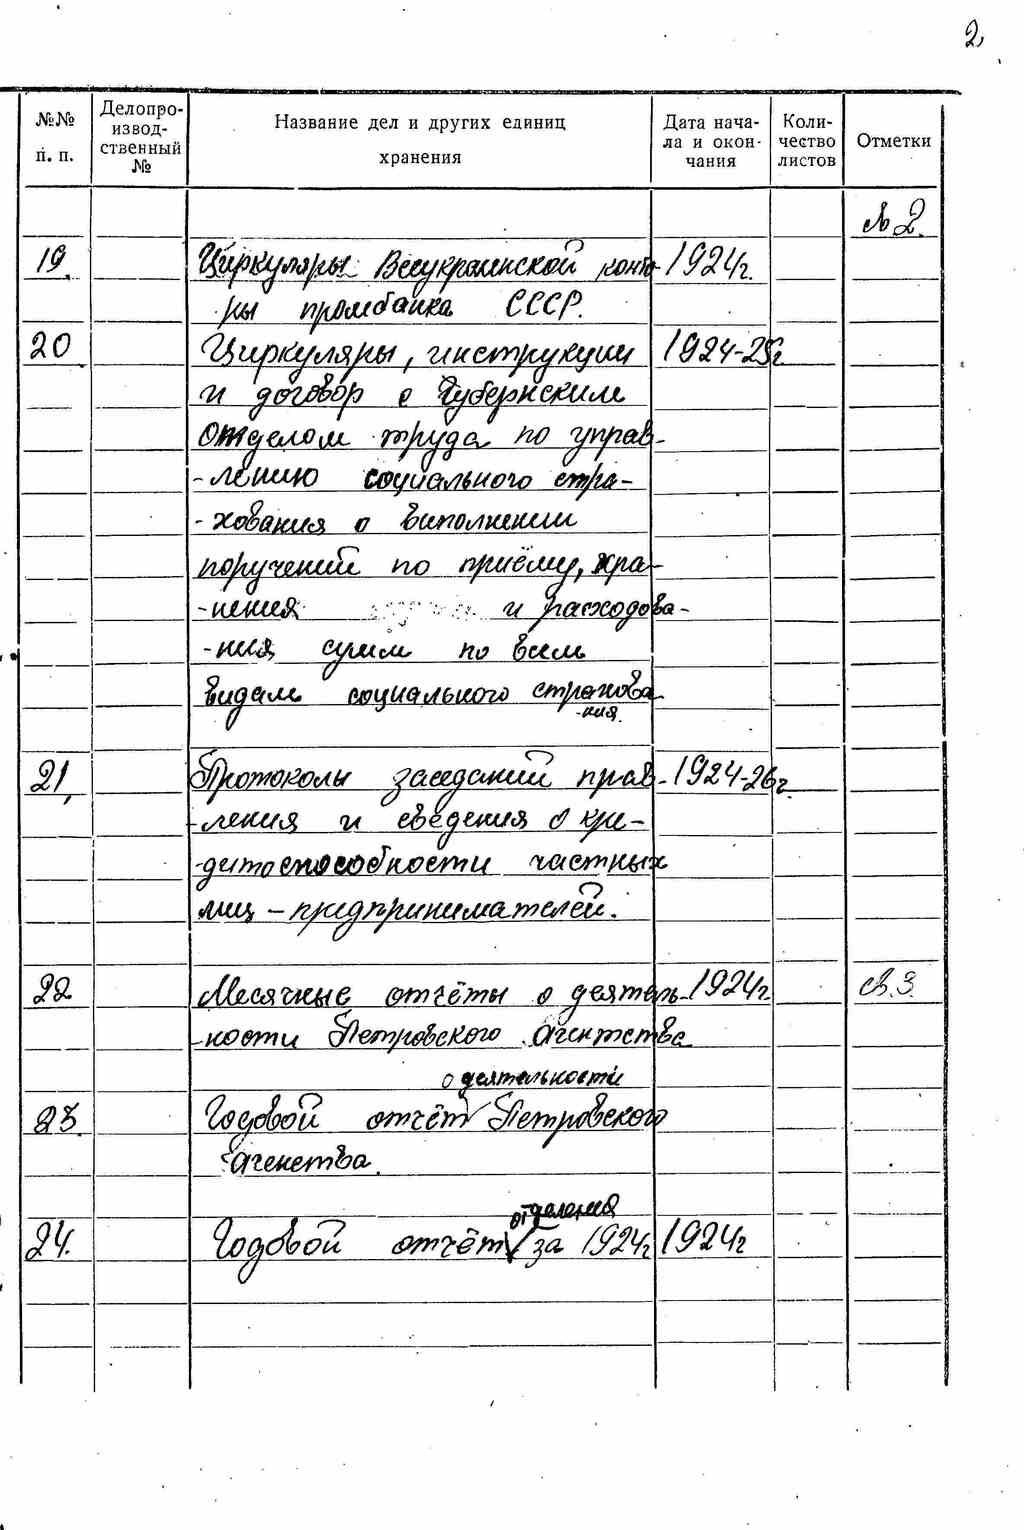 2,
№№ п. п.
Делопро-
извод-
ственный
№
Название дел и других единиц
хранения
Дата нача-
ла и окон-
чания
Коли-
чество
листов
Отметки
№ 2.
19. Циркуляры Всеукраинской конто- 1924г.
ры промбанка СССР.
20 Циркуляры, инструкции 1924-25г
и договор с Губернским
Отделом труда по управ-
-лению социального стра-
-хования о выполнении
поручений по приёму, хра-
-нения и расходова-
-ния сумм по всем
видам социального страхова
-ния.
21, Протоколы заседаний прав- 1924-26г.
-ления и сведения о кре-
-дитоспособности частных
лиц - предпринимателей.
22 Месячные отчёты о деятель- 1924г св. 3.
-ности Петровского Агентства
о деятельности
23. Годовой отчёт Петровского
Агенства.
отделения
24. Годовой отчёт за 1924г 1924г